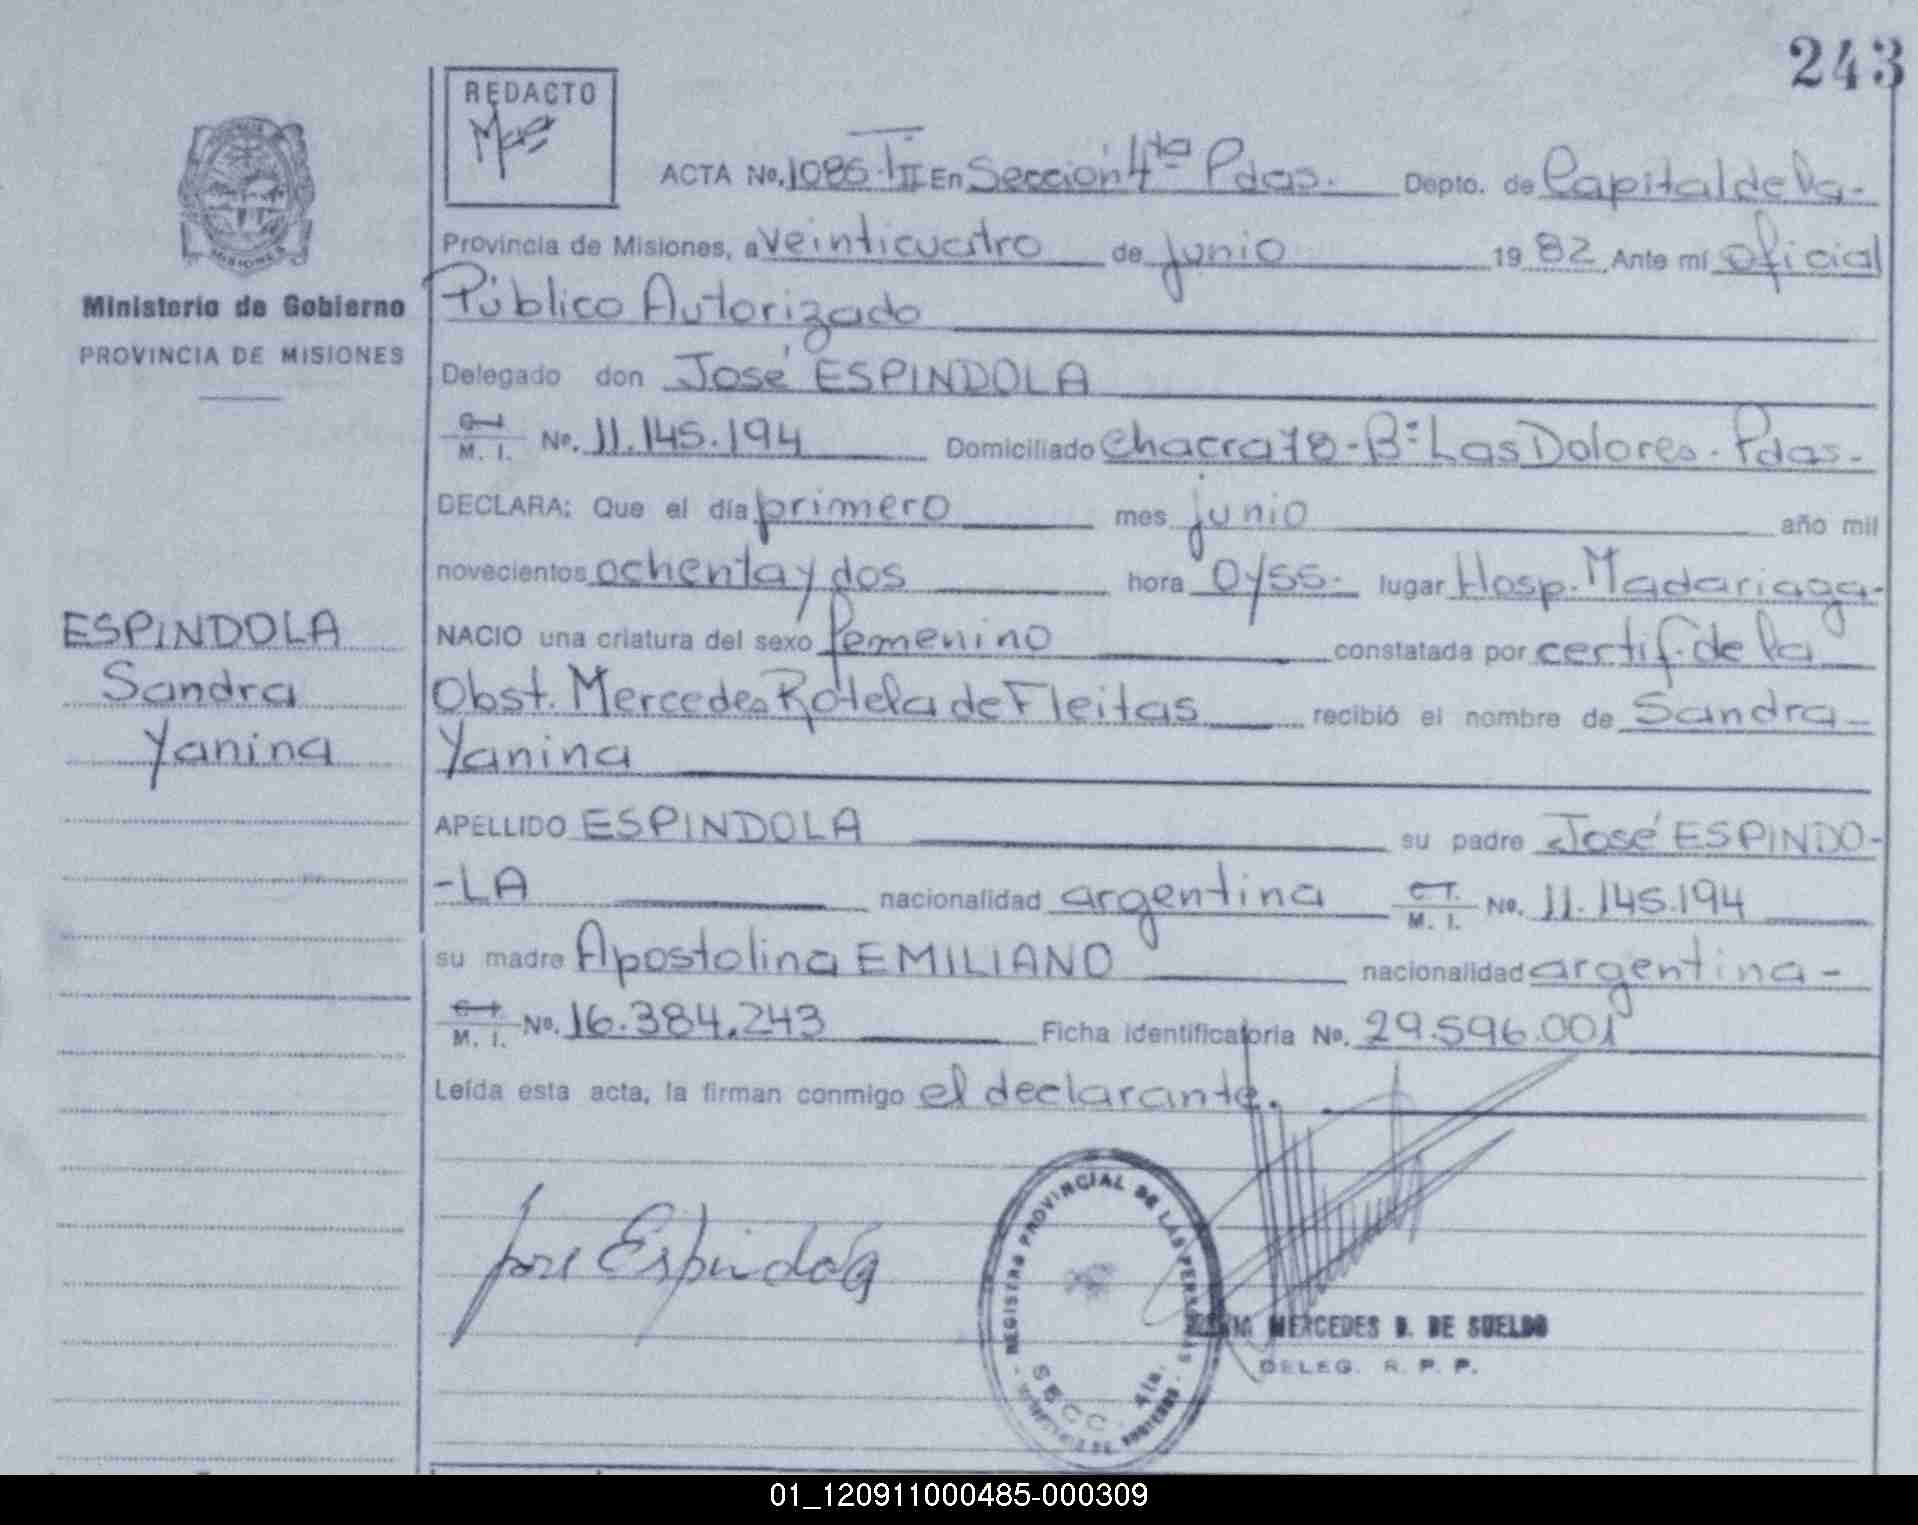 243
REDACTO
ACTA No. 1086-TII En Sección 4ta Pdas. Depto. de Capital de la-
Provincia de Misiones, a veinticuatro de junio 1982 Ante mí oficial
Público Autorizado
Delegado don José ESPINDOLA
M. I. No. 11.145.194 Domiciliado chacra 78-Bº Las Dolores. Pdas-
DECLARA: Que el día primero mes junio año mil
novecientos ochenta y dos hora 0y55- lugar Hosp. Madariaga-
NACIO una criatura del sexo femenino constatada por certif. de la
Obst. Mercedes Rotela de Fleitas recibió el nombre de Sandra-
Yanina
APELLIDO ESPINDOLA su padre José ESPINDO-
-LA nacionalidad argentina C.I. M. I. No. 11.145.194
su madre Apostolina EMILIANO nacionalidad argentina-
M. I. No. 16.384.243 Ficha identificatoria No. 29.596.001
Leída esta acta, la firman conmigo el declarante.
Jose Espindola
REGISTRO PROVINCIAL DE LAS PERSONAS
SECC. 4ta.
MERCEDES D. DE SUELDO
DELEG. R. P. P.
MISIONES
Ministerio de Gobierno
PROVINCIA DE MISIONES
ESPINDOLA
Sandra
Yanina
01_120911000485-000309